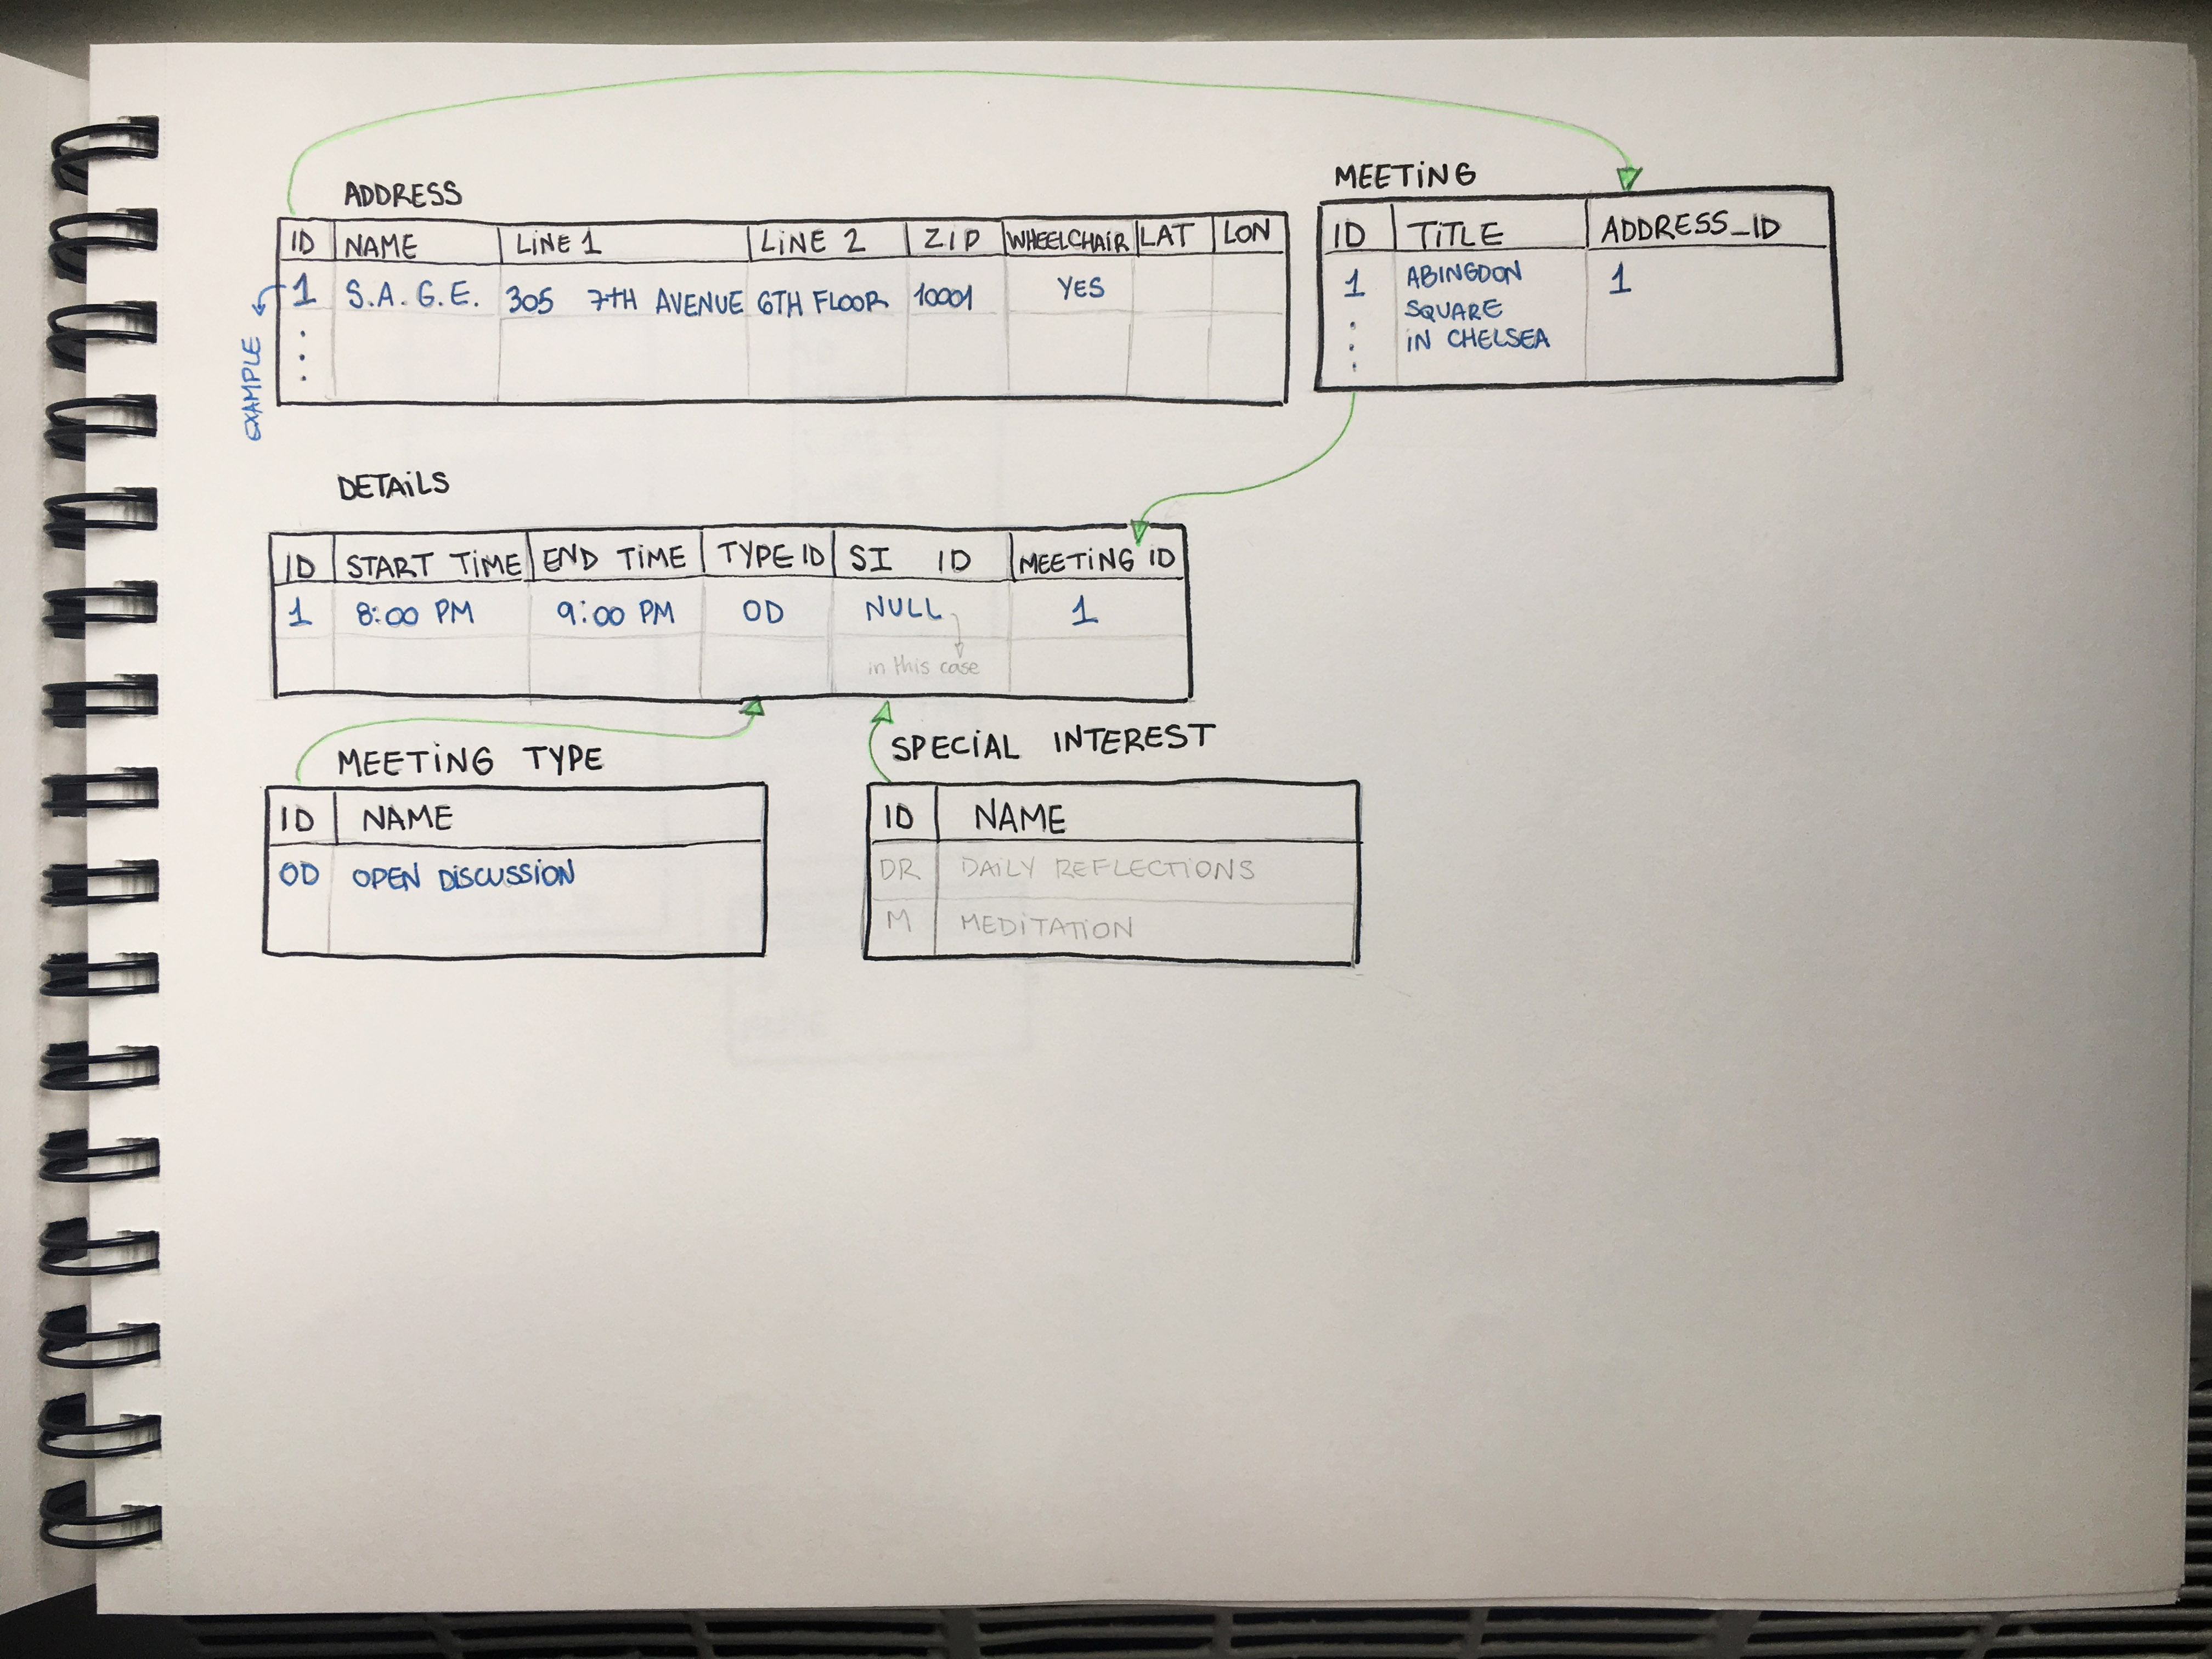 ADDRESS
ID NAME LINE 1 LINE 2 ZIP WHEELCHAIR LAT LON
1 S.A.G.E. 305 7TH AVENUE 6TH FLOOR 10001 YES
EXAMPLE
MEETING
ID TITLE ADDRESS_ID
1 ABINGDON 1
SQUARE
IN CHELSEA
DETAILS
ID START TIME END TIME TYPE ID SI ID MEETING ID
1 8:00 PM 9:00 PM OD NULL 1
in this case
MEETING TYPE
ID NAME
OD OPEN DISCUSSION
SPECIAL INTEREST
ID NAME
DR DAILY REFLECTIONS
M MEDITATION